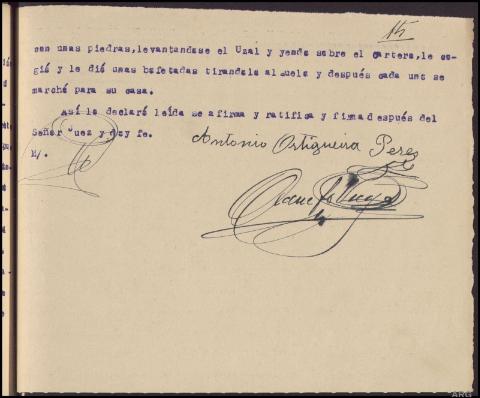 15
con unas piedras,levantandose el Uzal y yendo sobre el cartero,le co-
gió y le dió unas bofetadas tirandole al suelo y después cada uno se
marchó para su casa.
Así lo declaró leída se afirma y ratifica y firma después del
Señor Juez y doy fe.
Antonio Ortigueira Perez
E/.
ARG